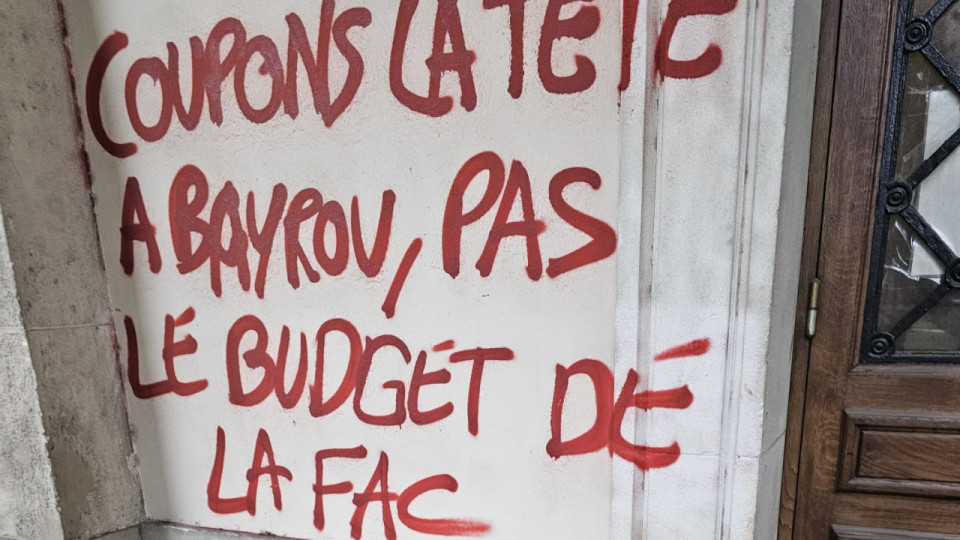 COUPONS LA TETE
A BAYROU, PAS
LE BUDGÉT DÉ
LA FAC